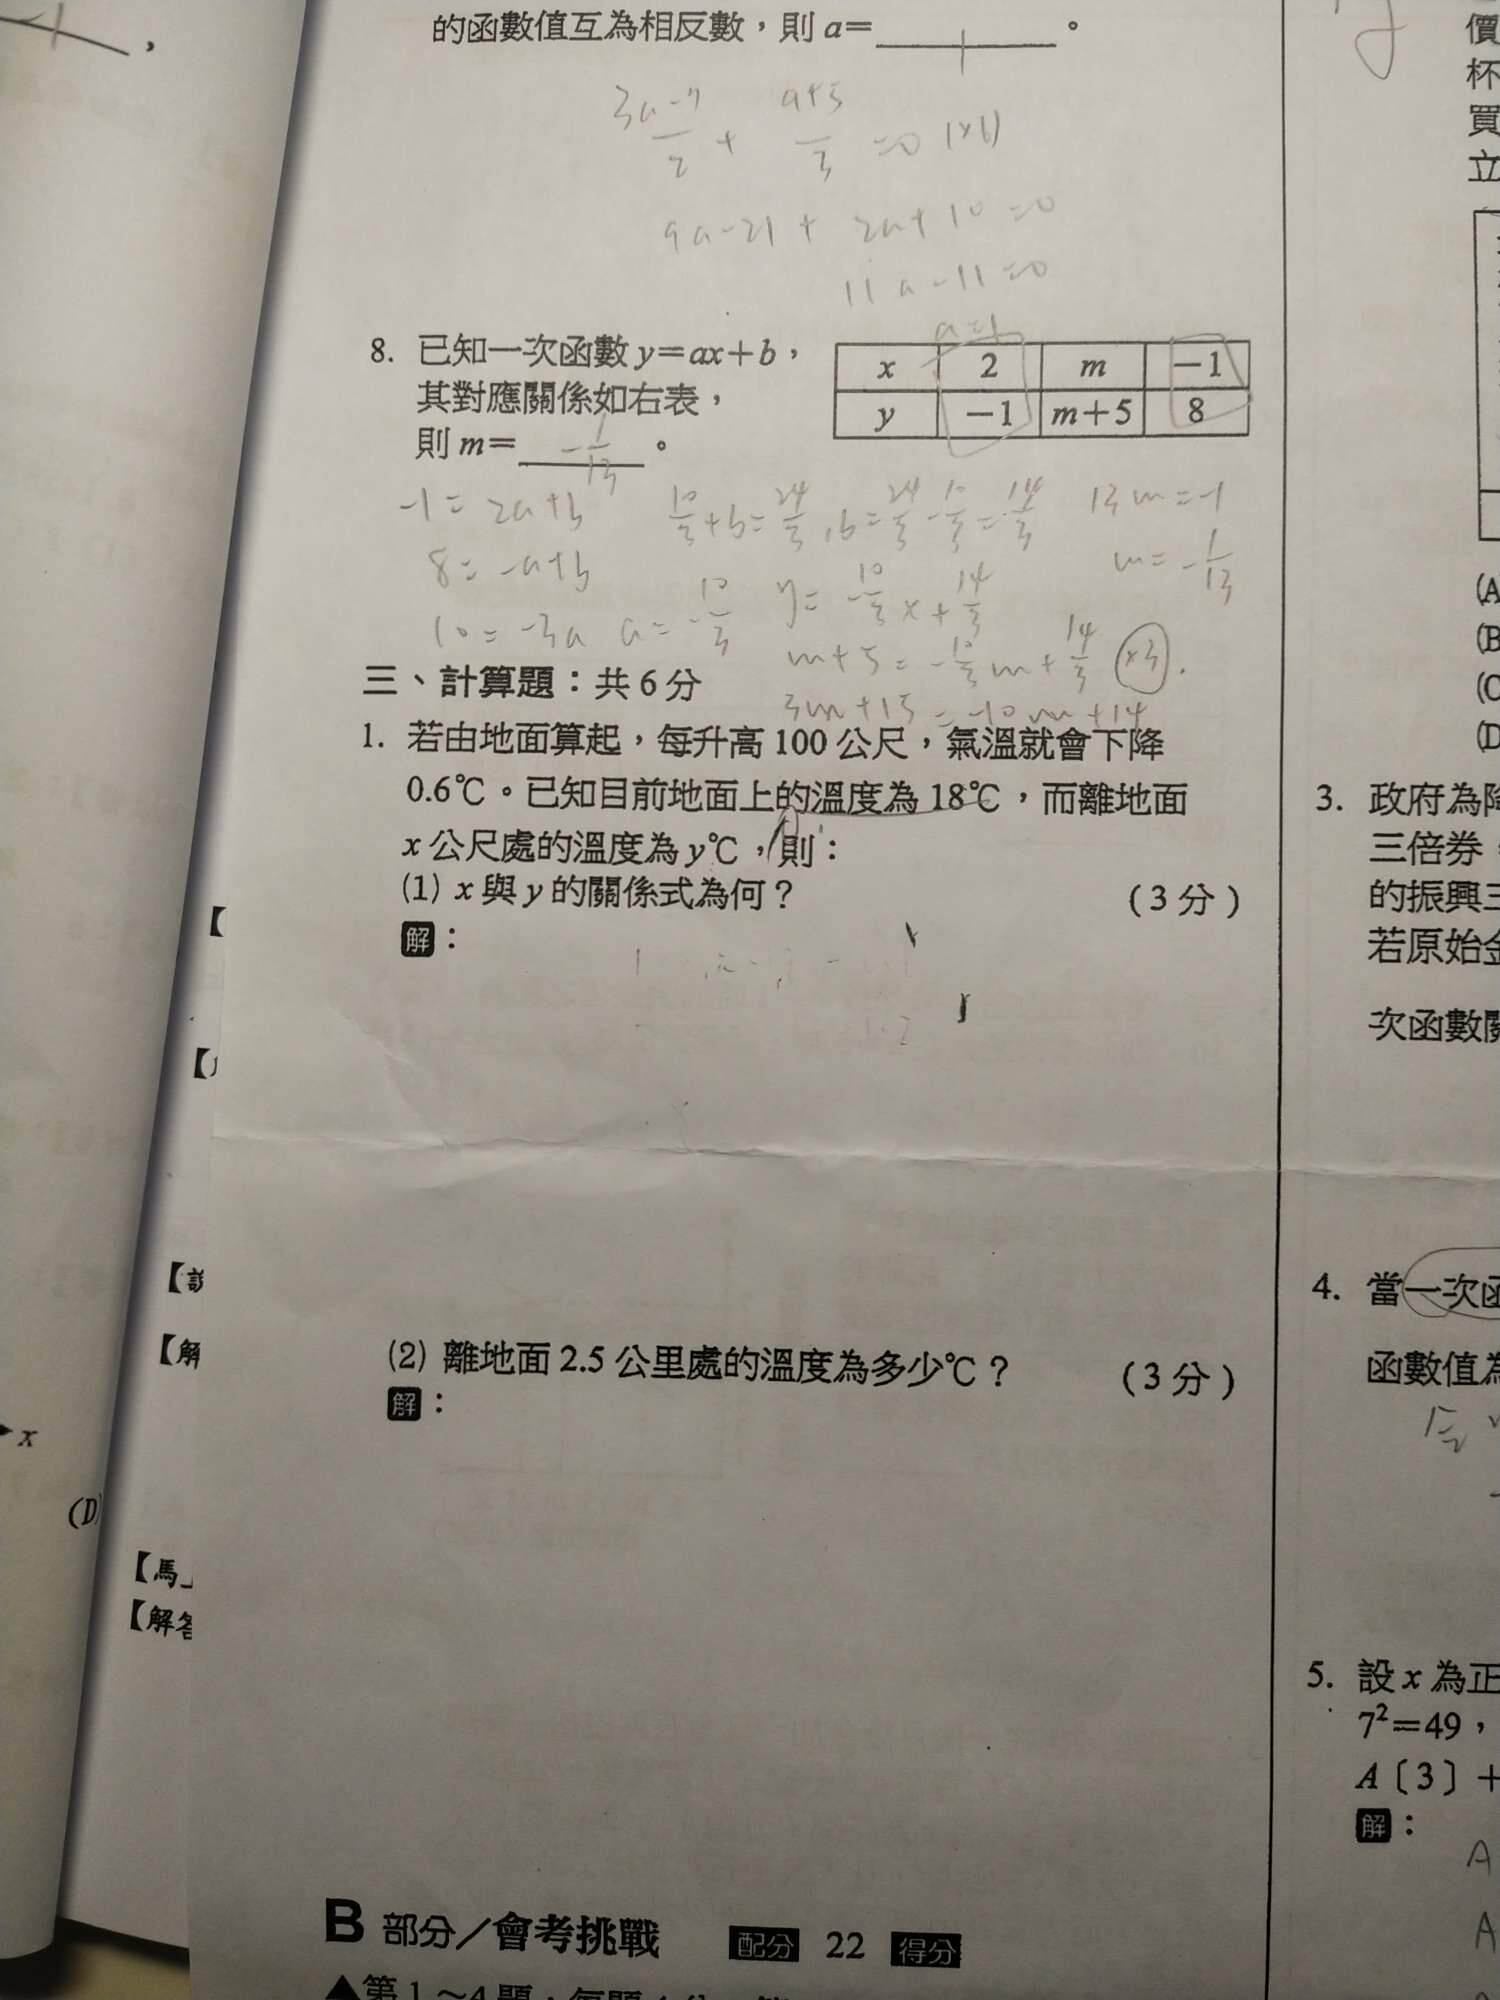 的函數值互為相反數，則 a=＿＿＿。
3a-7/2 + a+5/3 =0 (×6)
9a-21 + 2a+10=0
11a-11=0
a=1
8. 已知一次函數 y=ax+b，
其對應關係如右表，
則 m= -1/13 。
x 2 m -1
y -1 m+5 8
-1= 2a+b
8= -a+b
10= -3a a= -10/3
10/3+b=24/3, b=24/3-10/3=14/3
y= -10/3 x+14/3
m+5= -10/3 m+14/3 (×3).
3m+15=-10m+14
13m=-1
m= -1/13
三、計算題：共 6 分
1. 若由地面算起，每升高 100 公尺，氣溫就會下降
0.6℃。已知目前地面上的溫度為 18℃，而離地面
x 公尺處的溫度為 y℃，則：
(1) x 與 y 的關係式為何？ （3 分）
解：
(2) 離地面 2.5 公里處的溫度為多少℃？ （3 分）
解：
B 部分／會考挑戰 配分 22 得分
▲第 1～4 題，每題
價
杯
買
立
(A
(B
(C
(D
3. 政府為降
三倍券
的振興三
若原始金
次函數關
4. 當一次函
函數值為
5. 設 x 為正
7²=49，
A〔3〕+
解：
A
A
，
【解
x
(D)
【馬」
【解答